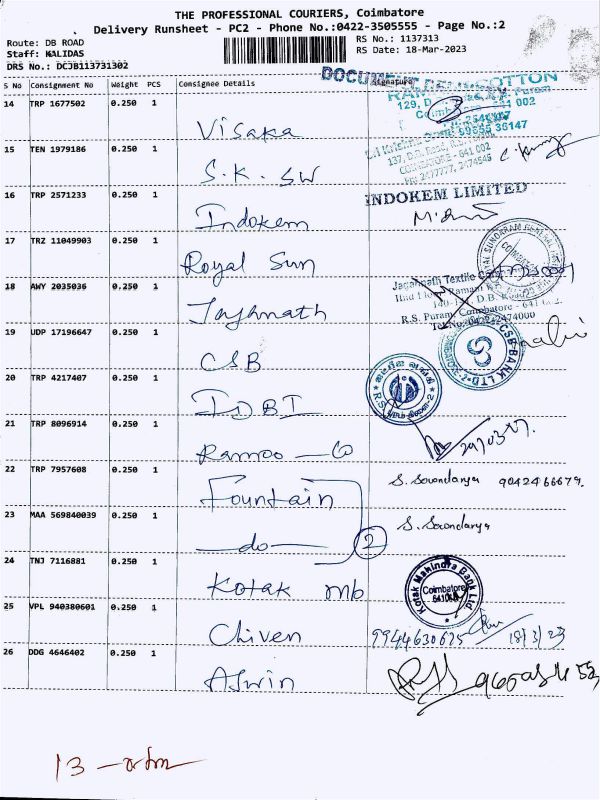 THE PROFESSIONAL COURIERS, Coimbatore
Delivery Runsheet - PC2 - Phone No.:0422-3505555 - Page No.:2
Route: DB ROAD
RS No.: 1137313
Staff: KALIDAS
RS Date: 18-Mar-2023
DRS No.: DCJB113731302
S No Consignment No Weight PCS Consignee Details Signature
14 TRP 1677502 0.250 1 Visaka
129, D
Coimb 002
36147
15 TEN 1979186 0.250 1 S.K. SW
137, D.B. Road, R.S.
COIMBATORE - 641 002
16 TRP 2571233 0.250 1 Indokem
INDOKEM LIMITED
17 TRZ 11049903 0.250 1 Royal Sun
18 AWY 2035036 0.250 1 Jaghnath
Jagannath Textile
D.B. Road
R.S. Puram, Coimbatore - 641 002.
19 UDP 17196647 0.250 1 CSB
CSB BANK LTD
20 TRP 4217407 0.250 1 IDBI
21 TRP 8096914 0.250 1 Ramoo - Co
22 TRP 7957608 0.250 1 Fountain S. Soundarya 9042466679.
23 MAA 569840039 0.250 1 -do- 2 S. Soundarya
24 TNJ 7116881 0.250 1 Kotak mb
Kotak Mahindra Bank Ltd.
Coimbatore
25 VPL 940380601 0.250 1 Chiven 9944630675 18/3/23
26 DDG 4646402 0.250 1 Aswin
13